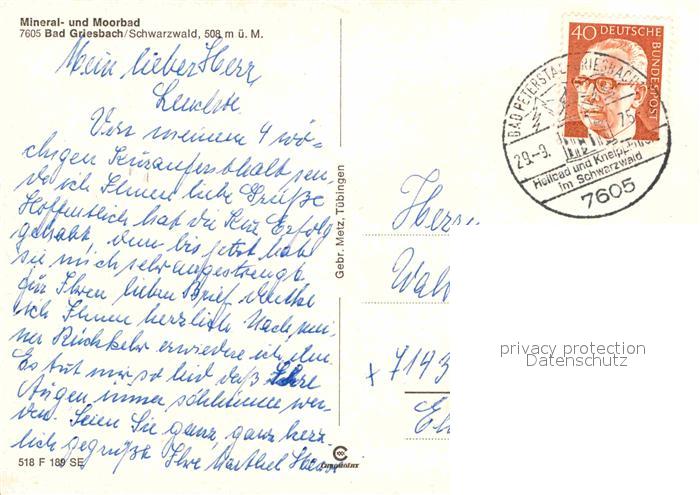 Mineral- und Moorbad
7605 Bad Griesbach/Schwarzwald, 508 m ü. M.
Mein lieber Herr
Von meinem 4 wö-
chigen Kuraufenthalt sen-
de ich Ihnen liebe Grüße
Hoffentlich hat die Kur Erfolg
gehabt, denn bis jetzt habe
sie mich sehr angestrengt
für Ihren lieben Brief danke
ich Ihnen herzlich. Nach mei-
ner Rückkehr erwiedere ich ihn.
Es tut mir so leid daß Ihre
Augen immer schlimmer wer-
den. Seien Sie ganz, ganz herz-
lich gegrüßt Ihre
518 F 189 SE
CHROMOLUX
Gebr. Metz, Tübingen
40 DEUTSCHE
BUNDESPOST
BAD PETERSTAL-GRIESBACH
29.-9. 75
Heilbad und Kneipp
im Schwarzwald
7605
Herrn
Wal
x 7143
privacy protection
Datenschutz